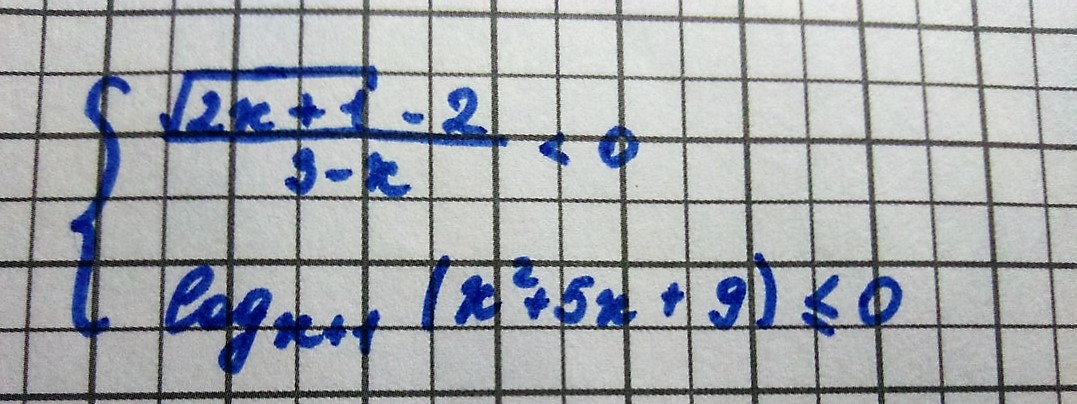 { (√(2x + 1) - 2) / (3 - x) < 0
log_{x+1} (x² + 5x + 9) ≤ 0